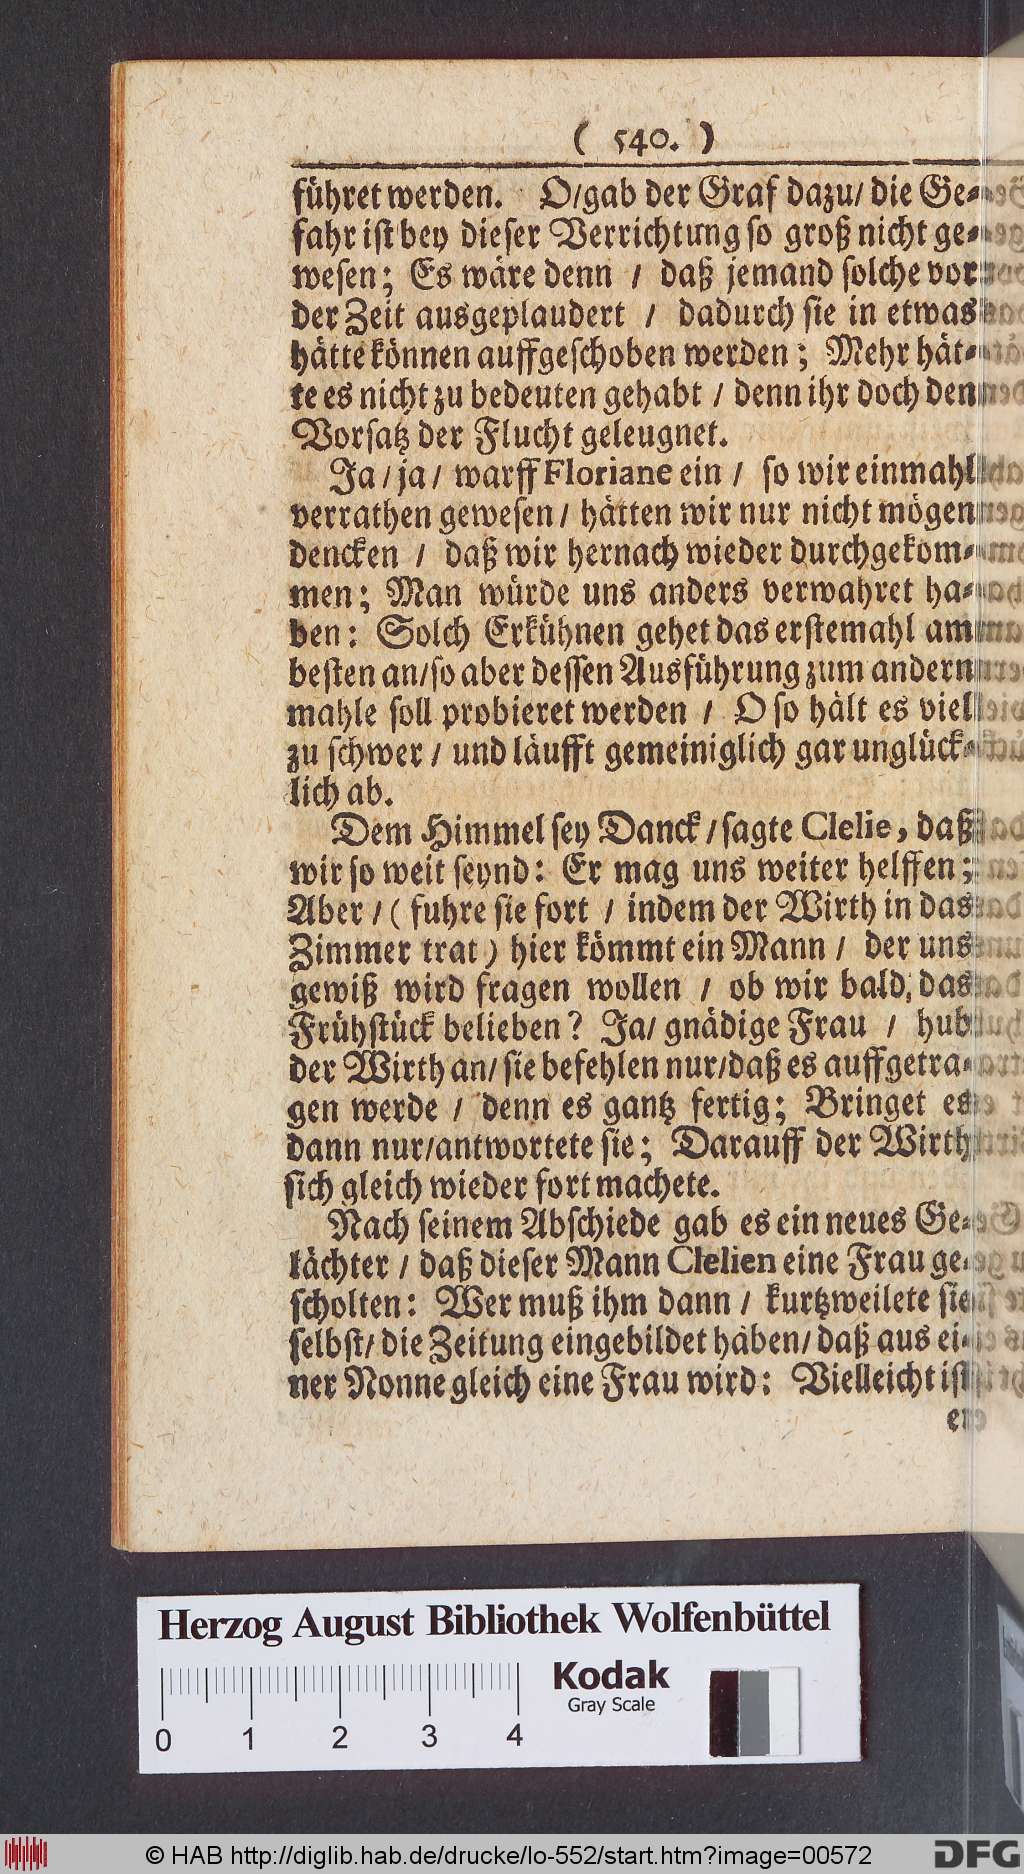 ( 540. )
führet werden. O/gab der Graf dazu/ die Ge-
fahr ist bey dieser Verrichtung so groß nicht ge-
wesen; Es wäre denn / daß jemand solche vor
der Zeit ausgeplaudert / dadurch sie in etwas
hätte können auffgeschoben werden; Mehr hät-
te es nicht zu bedeuten gehabt / denn ihr doch den
Vorsatz der Flucht geleugnet.
Ja/ ja/ warff Floriane ein / so wir einmahl
verrathen gewesen/ hätten wir nur nicht mögen
dencken / daß wir hernach wieder durchgekom-
men; Man würde uns anders verwahret ha-
ben: Solch Erkühnen gehet das erstemahl am
besten an/so aber dessen Ausführung zum andern
mahle soll probieret werden / O so hält es viel
zu schwer / und läufft gemeiniglich gar unglück-
lich ab.
Dem Himmel sey Danck/sagte Clelie, daß
wir so weit seynd: Er mag uns weiter helffen;
Aber / ( fuhre sie fort / indem der Wirth in das
Zimmer trat ) hier kömmt ein Mann / der uns
gewiß wird fragen wollen / ob wir bald, das
Frühstück belieben? Ja/ gnädige Frau / hub
der Wirth an/ sie befehlen nur/daß es auffgetra-
gen werde / denn es gantz fertig; Bringet es
dann nur/antwortete sie; Darauff der Wirth
sich gleich wieder fort machete.
Nach seinem Abschiede gab es ein neues Ge-
lächter / daß dieser Mann Clelien eine Frau ge-
scholten: Wer muß ihm dann / kurtzweilete sie
selbst/ die Zeitung eingebildet haben/ daß aus ei-
ner Nonne gleich eine Frau wird: Vielleicht ist
er
Herzog August Bibliothek Wolfenbüttel
Kodak
Gray Scale
0 1 2 3 4
© HAB http://diglib.hab.de/drucke/lo-552/start.htm?image=00572
DFG